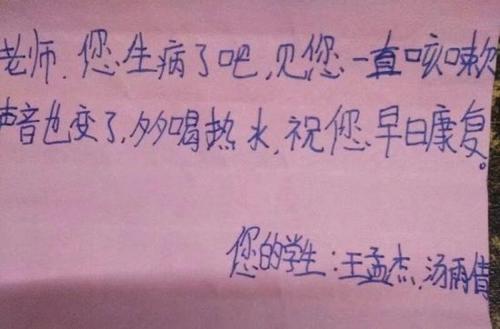 老师,您生病了吧,见您一直咳嗽
声音也变了,多多喝热水,祝您早日康复。
您的学生:王孟杰,汤雨倩